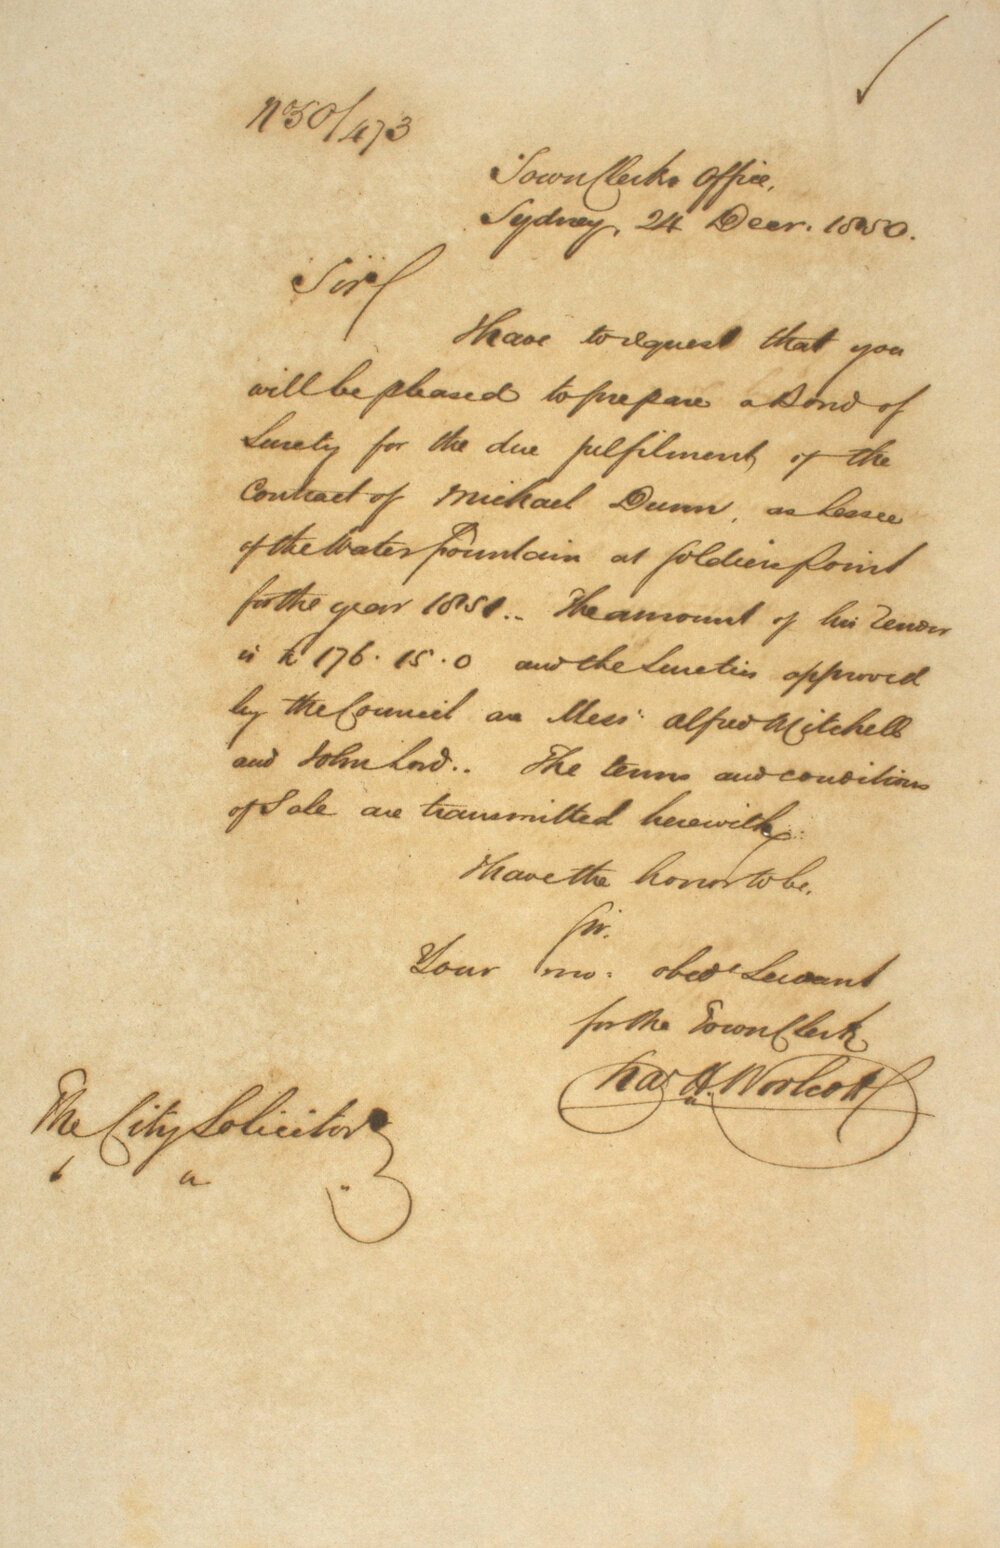 No 50/473
Town Clerks Office,
Sydney, 24 Decr. 1850.
Sir
I have to request that you
will be pleased to prepare a Bond of
Surety for the due fulfilment of the
Contract of Michael Dunn, as Lessee
of the Water Fountain at Soldiers Point
for the year 1851.. The amount of his Tender
is £176.15.0 and the Sureties approved
by the Council are Messrs: Alfred Mitchell
and John Lord.. The terms and conditions
of Sale are transmitted herewith
I have the honor to be,
Sir.
Your mo: obedt Servant
for the Town Clerk
Chas H. Woolcott
The City Solicitor
" " "